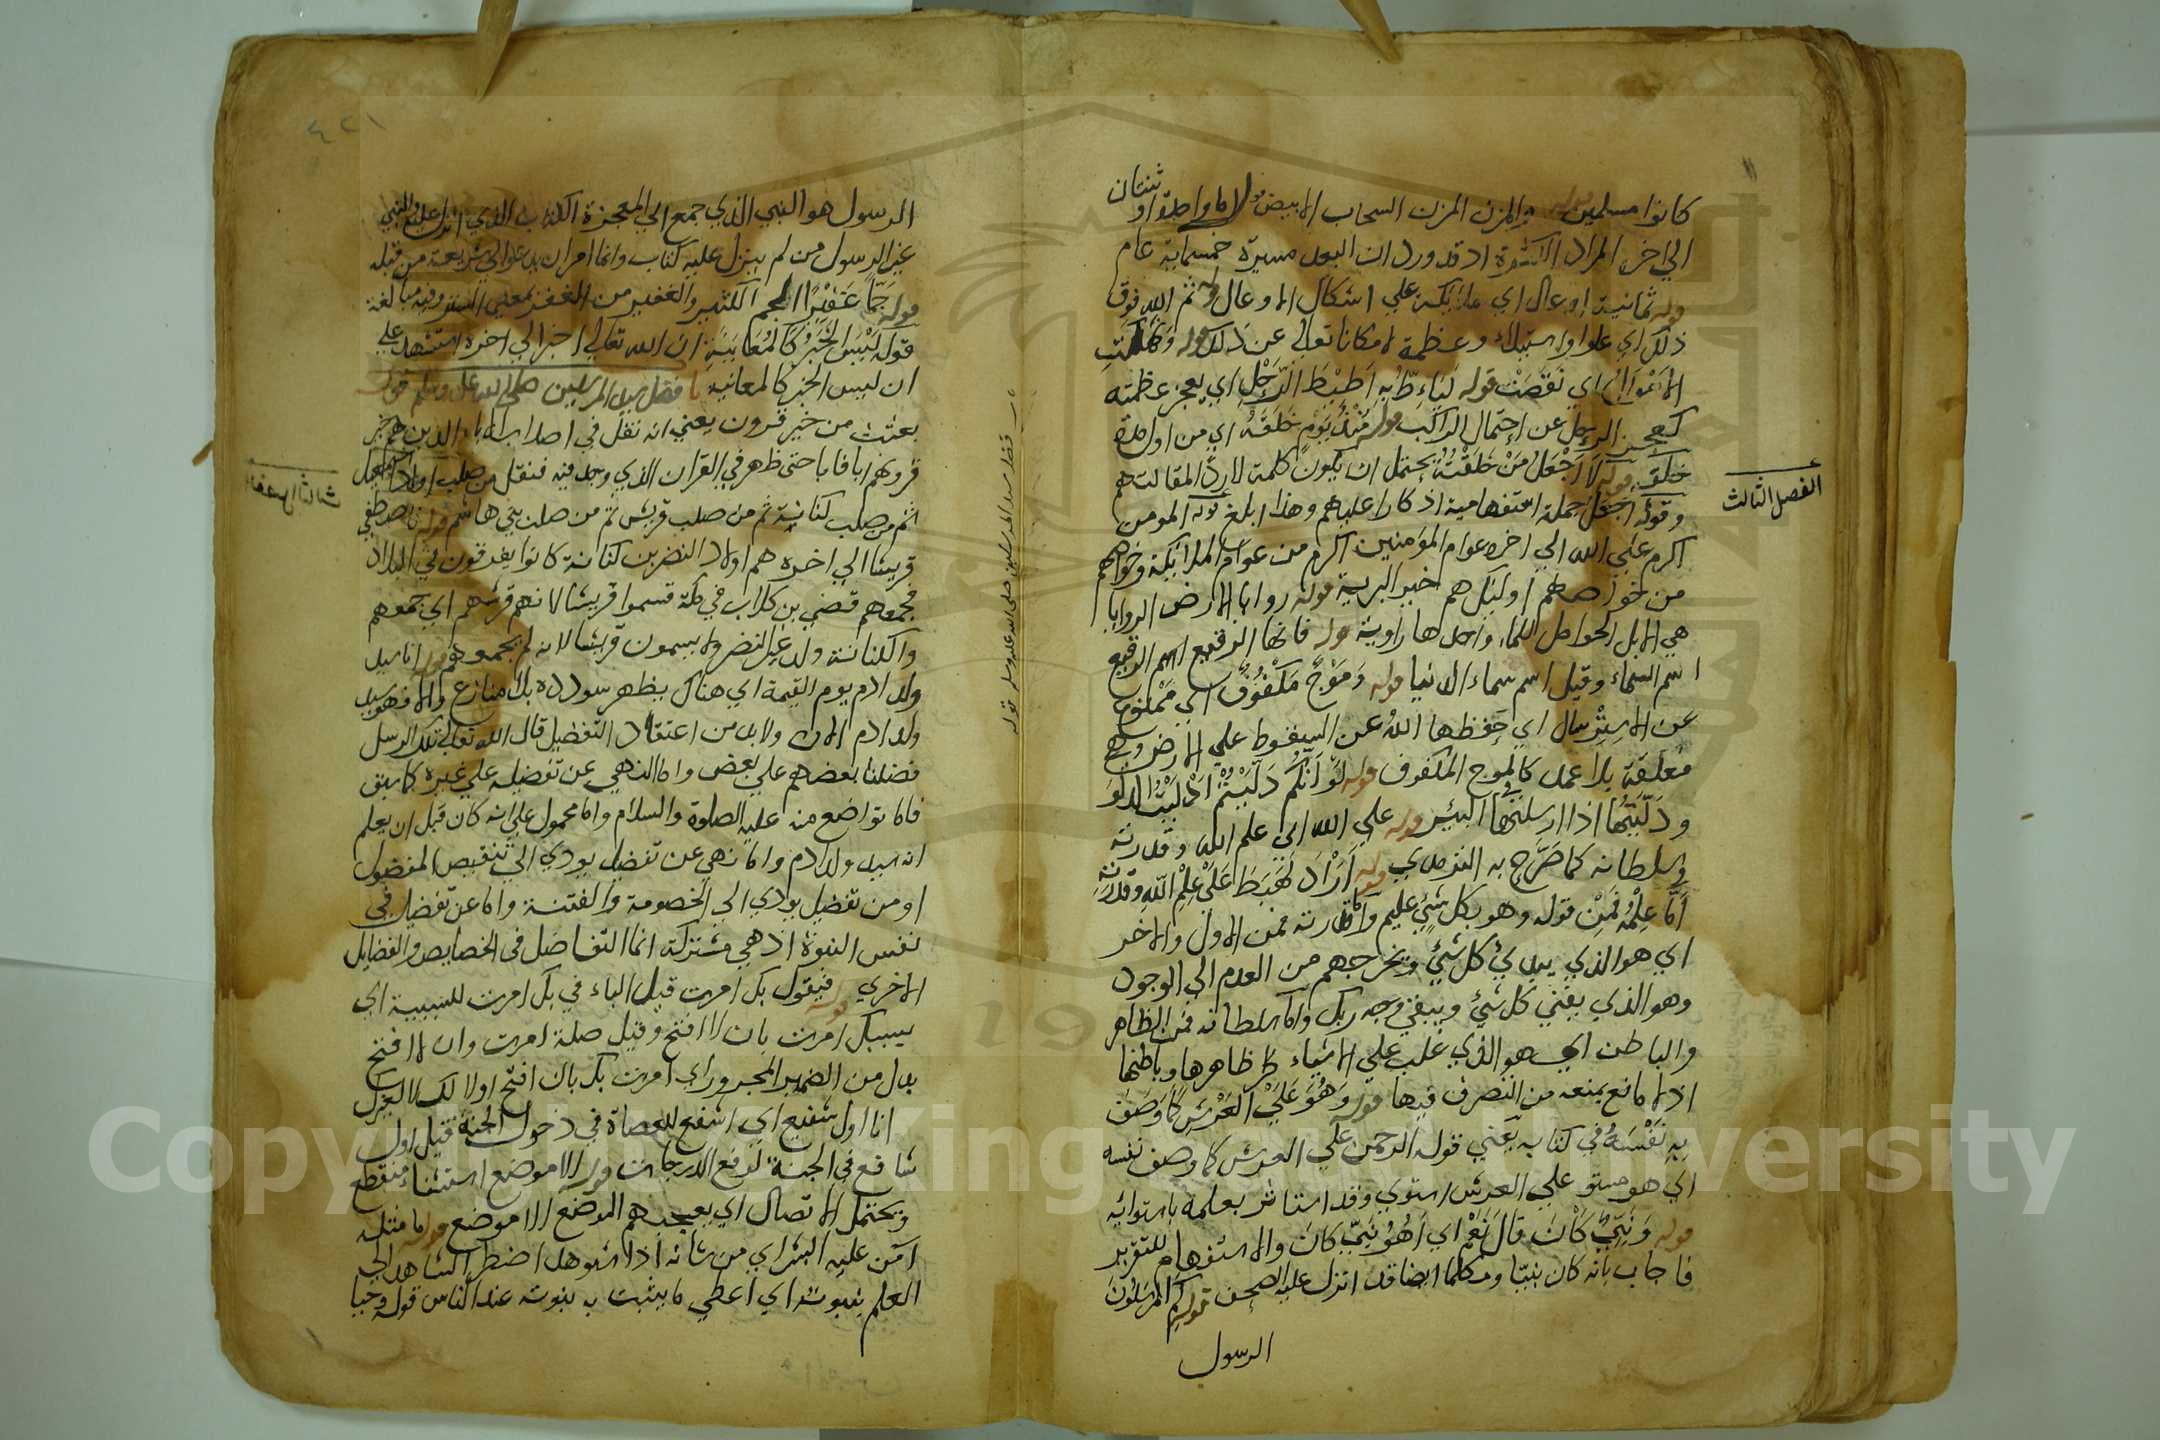 كانوا مسلمين قوله والمزن المزن السحاب الابيض قوله اما واحدة او ثنتان
الي اخره المراد الكثرة اذ قد ورد ان البعد مسيرة خمسماية عام
قوله ثمانية اوعال اي ملايكة علي اشكال الاوعال قوله ثم الله فوق
ذلك اي علوا واستيلاء وعظمة لا مكانا تعالي عن ذلك قوله ونهكت
الاموال اي نقصت قوله ليئط به اطيط الرحل اي يعجز عظمته
كعجز الرحل عن احتمال الراكب قوله منذ يوم خلقه اي من اول مدة
خلقه قوله لا اجعل من خلقته يحتمل ان يكون كلمة لا رد المقالتهم
وقوله اجعل جملة استفهامية انكارا عليهم وهذا ابلغ قوله المومن
اكرم علي الله الي اخره عوام المؤمنين اكرم من عوام الملايكة وخواصهم
من خواصهم اوليك هم خير البرية قوله روايا الارض الروايا
هي الابل الحوامل للماء واحدها راوية قوله فانها الرقيع اسم الرقيع
اسم السماء وقيل اسم سماء الدنيا قوله وموج مكفوف اي ممنوع
عن الاسترسال اي حفظها الله عن السقوط علي الارض وهي
معلقة بلا عمد كالموج المكفوف قوله لو انكم دليتم ادليت الدلو
ودليتها اذا ارسلتها في البئر قوله علي الله اي علم الله وقدرته
وسلطانه كما صرح به الترمذي قوله اراد لهبط على علم الله وقدرته
اما علمه فمن قوله وهو بكل شئ عليم واما قدرته فمن الاول والاخر
اي هو الذي يبدئ كل شئ ويخرجهم من العدم الي الوجود
وهو الذي يفني كل شئ ويبقي وجه ربك واما سلطانه فمن الظاهر
والباطن اي هو الذي غلب علي الاشياء كلها ظاهرها وباطنها
اذ لا مانع يمنعه من التصرف فيها قوله وهو علي العرش كما وصف
به نفسه في كتابه يعني قوله الرحمن علي العرش كما وصف نفسه
اي هو مستو علي العرش استوي وقد استاثر بعلمه باستوائه
قوله ونبي كان قال نعم اي اهو نبي كان والاستفهام للتقرير
فاجاب بانه كان نبيا ومكلما ايضا قد انزل عليه الصحف قوله كم المرسلون
الرسول
الفصل الثالث
الرسول هو النبي الذي جمع الي المعجزة الكتاب الذي انزل عليه والنبي
غير الرسول من لم ينزل عليه كتاب وانما امر ان يدعو الي شريعة من قبله
قوله جما غفيرا الجم الكثير والغفير من الغفر بمعني الستر وفيه مبالغة
قوله ليس الخبر كالمعاينة ان الله تعالي اخبر الي اخره استشهد علي
ان ليس الخبر كالمعاينة باب فضل سيد المرسلين صلي الله عليه وسلم قوله
بعثت من خير قرون يعني انه نقل في اصلاب الاباء الذين هم خير
قرونهم ابا فابا حتى ظهر في القران الذي وجد فيه فنقل من صلب اولاد اسمعيل
ثم من صلب كنانة ثم من صلب قريش ثم من صلب بني هاشم قوله اصطفي
قريشا الي اخره هم اولاد النضر بن كنانة كانوا يفرقون في البلاد
فجمعهم قصي بن كلاب في مكة فسموا قريشا لانهم قرشهم اي جمعهم
والكنانة ولد غير النضر ولا يسمون قريشا لانه لم يجمعوا قوله انا سيد
ولد ادم يوم القيمة اي هناك يظهر سودده بلا منازع والا فهو سيد
ولد ادم الان ولا بد من اعتقاد التفضيل قال الله تعالي تلك الرسل
فضلنا بعضهم علي بعض واما النهي عن تفضيله علي غيره كما سبق
فاما تواضع منه عليه الصلوة والسلام واما محمول علي انه كان قبل ان يعلم
انه سيد ولد ادم واما نهي عن تفضيل يودي الي تنقيص المفضول
او من تفضيل يودي الي الخصومة والفتنة واما عن تفضيل في
نفس النبوة اذ هي مشتركة انما التفاضل في الخصايص والفضايل
الاخري قوله فيقول بك امرت قيل الباء في بك امرت للسببية اي
بسببك امرت بان لا افتح وقيل صلة امرت وان لا افتح
بدل من الضمير المجرور اي امرت بك بان افتح اولا لك لا لغيرك
انا اول شفيع اي اشفع للعصاة في دخول الجنة قيل اول
شافع في الجنة لرفع الدرجات قوله الا موضع استثناء منقطع
ويحتمل الاتصال اي يعجبهم الموضع الا موضع قوله ما مثله
امن عليه البشر اي من شانه اذا شوهد اضطر الشاهد الي
العلم بنبوته اي اعطي ما يثبت به نبوته عند الناس قوله وحيا
باب فضل سيد المرسلين صلى الله عليه وسلم قوله